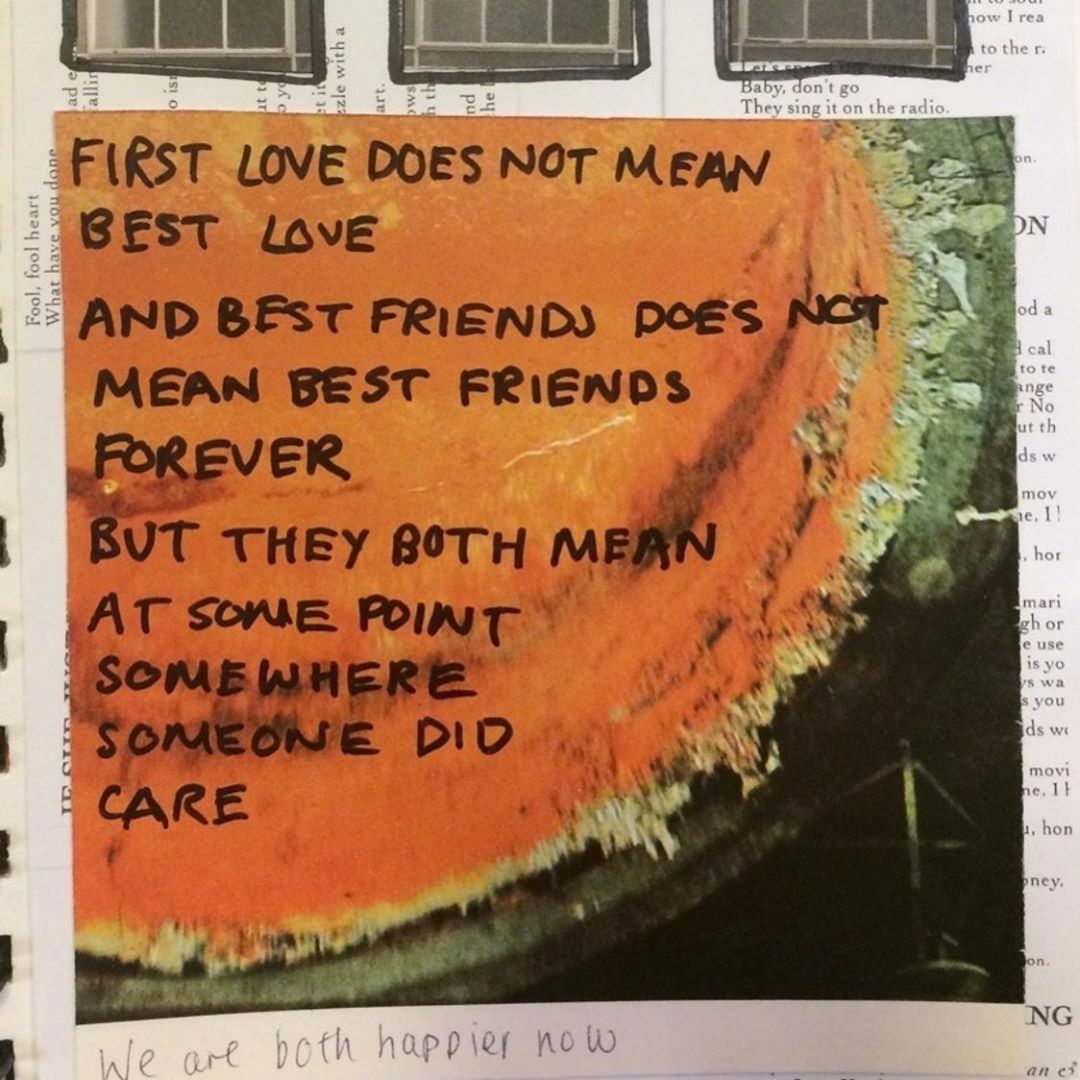 now I rea
to the r
Baby, don't go
They sing it on the radio.
Fool, fool heart
What have you done
FIRST LOVE DOES NOT MEAN
BEST LOVE
AND BEST FRIENDS DOES NOT
MEAN BEST FRIENDS
FOREVER
BUT THEY BOTH MEAN
AT SOME POINT
SOMEWHERE
SOMEONE DID
CARE
We are both happier now
on.
ON
od a
cal
to te
ange
No
ut th
ds w
mov
ne, I
hor
mari
gh or
e use
is yo
s wa
s you
ds w
movi
ne, I
, hon
oney,
on.
NG
an e